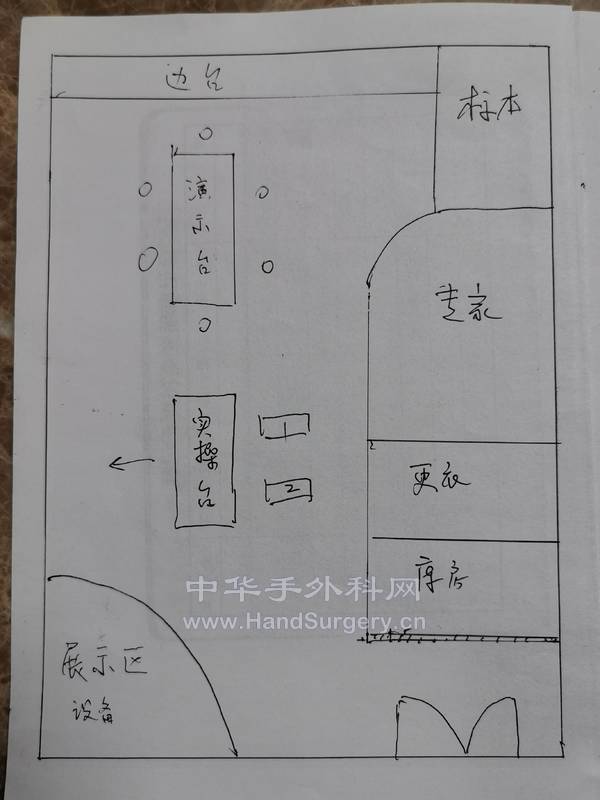 边台
标本
演示台
专家
实操台
1
2
更衣
库房
中华手外科网
www.HandSurgery.cn
展示区
设备